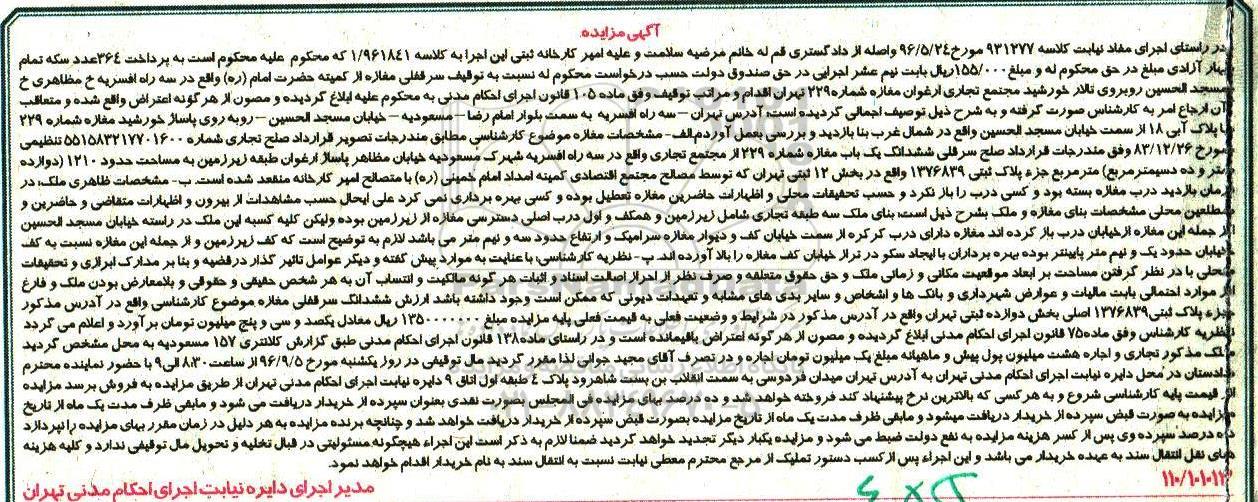 آگهی مزایده
در راستای اجرای مفاد نیابت کلاسه ۹۳۱۲۷۷ مورخ ۹۶/۵/۲۴ واصله از دادگستری قم له خانم مرضیه سلامت و علیه امیر کارخانه ثبتی این اجرا به کلاسه ۱/۹۶۱۸۴۱ که محکوم علیه محکوم است به پرداخت ۳۶۴عدد سکه تمام
بهار آزادی مبلغ در حق محکوم له و مبلغ ۱۵۵/۰۰۰ریال بابت نیم عشر اجرایی در حق صندوق دولت حسب درخواست محکوم له نسبت به توقیف سرقفلی مغازه از کمیته حضرت امام (ره) واقع در سه راه افسریه خ مظاهری خ
مسجد الحسین روبروی تالار خورشید مجتمع تجاری ارغوان مغازه شماره ۲۲۹ تهران اقدام و مراتب توقیف وفق ماده ۱۰۵ قانون اجرای احکام مدنی به محکوم علیه ابلاغ گردیده و مصون از هر گونه اعتراض واقع شده و متعاقب
آن ارجاع امر به کارشناس صورت گرفته و به شرح ذیل توصیف اجمالی گردیده است آدرس تهران – سه راه افسریه به سمت بلوار امام رضا – مسعودیه – خیابان مسجد الحسین – روبه روی پاساژ خورشید مغازه شماره ۲۲۹
با پلاک آبی ۱۸ از سمت خیابان مسجد الحسین واقع در شمال غرب بنا بازدید و بررسی بعمل آوردم.الف- مشخصات مغازه موضوع کارشناسی مطابق مندرجات تصویر قرارداد صلح تجاری شماره ۵۵۱۵۸۳۲۱۷۷۰۱۶۰۰ تنظیمی
مورخ ۸۳/۱۲/۲۶ وفق مندرجات قرارداد صلح سرقفلی ششدانگ یک باب مغازه شماره ۲۲۹ از مجتمع تجاری واقع در سه راه افسریه شهرک مسعودیه خیابان مظاهر پاساژ ارغوان طبقه زیرزمین به مساحت حدود ۱۲۱۰ (دوازده
متر و ده دسیمترمربع) مترمربع جزء پلاک ثبتی ۱۳۷۶۸۳۹ واقع در بخش ۱۲ ثبتی تهران که توسط مصالح مجتمع اقتصادی کمیته امداد امام خمینی (ره) با متصالح امیر کارخانه منقعد شده است. ب- مشخصات ظاهری ملک، در
زمان بازدید درب مغازه بسته بود و کسی درب را باز نکرد و حسب تحقیقات محلی و اظهارات حاضرین مغازه تعطیل بوده و کسی بهره برداری نمی کرد علی ایحال حسب مشاهدات از بیرون و اظهارات متقاضی و حاضرین و
مطلعین محلی مشخصات بنای مغازه و ملک بشرح ذیل است، بنای ملک سه طبقه تجاری شامل زیرزمین و همکف و اول درب اصلی دسترسی مغازه از زیرزمین بوده ولیکن کلیه کسبه این ملک در راسته خیابان مسجد الحسین
از جمله این مغازه ازخیابان درب باز کرده اند مغازه دارای درب کرکره از سمت خیابان کف و دیوار مغازه سرامیک و ارتفاع حدود سه و نیم متر می باشد لازم به توضیح است که کف زیرزمین و از جمله این مغازه نسبت به کف
خیابان حدود یک و نیم متر پایینتر بوده بهره برداران با ایجاد سکو در تراز خیابان کف مغازه را بالا آورده اند. پ- نظریه کارشناسی، با عنایت به موارد پیش گفته و دیگر عوامل تاثیر گذار در قضیه و بنا بر مدارک ابرازی و تحقیقات
محلی با در نظر گرفتن مساحت بر ابعاد موقعیت مکانی و زمانی ملک و حق حقوق متعلقه و صرف نظر از احراز اصالت اسناد و اثبات هر گونه مالکیت و انتساب آن به هر شخص حقیقی و حقوقی و بلامعارض بودن ملک و فارغ
از موارد احتمالی بابت مالیات و عوارض شهرداری و بانک ها و اشخاص و سایر بدی های مشابه و تعهدات دیونی که ممکن است وجود داشته باشد ارزش ششدانگ سرقفلی مغازه موضوع کارشناسی واقع در آدرس مذکور
جزء پلاک ثبتی ۱۳۷۶۸۳۹ اصلی بخش دوازده ثبتی تهران واقع در آدرس مذکور در شرایط و وضعیت فعلی به قیمت فعلی پایه مزایده مبلغ ۱۳۵۰۰۰۰۰۰۰ ریال معادل یکصد و سی و پنج میلیون تومان برآورد و اعلام می گردد
نظریه کارشناس وفق ماده۷۵ قانون اجرای احکام مدنی ابلاغ گردیده و مصون از هر گونه اعتراض باقیمانده است و در راستای ماده۱۳۸ قانون اجرای احکام مدنی طبق گزارش کلانتری ۱۵۷ مسعودیه به محل مشخص گردید
ملک مذکور تجاری و اجاره هشت میلیون پول پیش و ماهیانه مبلغ یک میلیون تومان اجاره و در تصرف آقای مجید جوانی لذا مقرر گردید مال توقیفی در روز یکشنبه مورخ ۹۶/۹/۵ از ساعت ۸:۳۰ الی ۹ با حضور نماینده محترم
دادستان در محل دایره نیابت اجرای احکام مدنی تهران به آدرس تهران میدان فردوسی به سمت انقلاب بن بست شاهرود پلاک ٤ طبقه اول اتاق ۹ دایره نیابت اجرای احکام مدنی تهران از طریق مزایده به فروش برسد مزایده
از قیمت پایه کارشناسی شروع و به هر کسی که بالاترین نرخ پیشنهاد کند فروخته خواهد شد و ده درصد بهای مزایده فی المجلس بصورت نقدی بعنوان سپرده از خریدار دریافت می شود و مابقی ظرف مدت یک ماه از تاریخ
مزایده به صورت قبض سپرده از خریدار دریافت میشود و مابقی ظرف مدت یک ماه از تاریخ مزایده بصورت قبض سپرده از خریدار دریافت خواهد شد و چنانچه برنده مزایده به هر دلیل در زمان مقرر بهای مزایده را نپردازد
ده درصد سپرده وی پس از کسر هزینه مزایده به نفع دولت ضبط می شود و مزایده یکبار دیگر تجدید خواهد گردید ضمنا لازم به ذکر است این اجراء هیچگونه مسئولیتی در قبال تخلیه و تحویل مال توقیفی ندارد و کلیه هزینه
های نقل انتقال سند به عهده خریدار می باشد و این اجراء پس از کسب دستور تملیک از مرجع محترم معطی نیابت نسبت به انتقال سند به نام خریدار اقدام خواهد نمود.
۱۱۰/۱۰۱۰۱۳
مدیر اجرای دایره نیابت اجرای احکام مدنی تهران